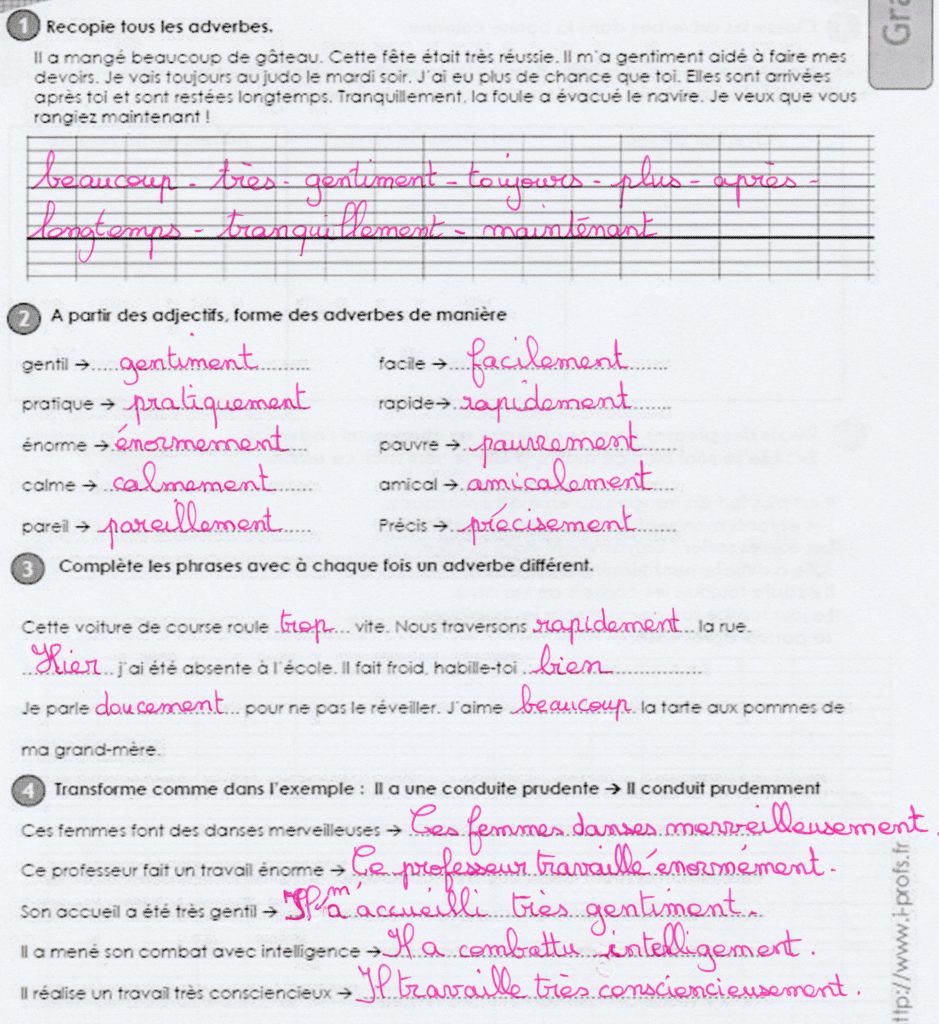 1 Recopie tous les adverbes.
Il a mangé beaucoup de gâteau. Cette fête était très réussie. Il m'a gentiment aidé à faire mes
devoirs. Je vais toujours au judo le mardi soir. J'ai eu plus de chance que toi. Elles sont arrivées
après toi et sont restées longtemps. Tranquillement, la foule a évacué le navire. Je veux que vous
rangiez maintenant !
beaucoup - très - gentiment - toujours - plus - après -
longtemps - tranquillement - maintenant
2 A partir des adjectifs, forme des adverbes de manière
gentil → gentiment facile → facilement
pratique → pratiquement rapide → rapidement
énorme → énormement pauvre → pauvrement
calme → calmement amical → amicalement
pareil → pareillement Précis → précisement
3 Complète les phrases avec à chaque fois un adverbe différent.
Cette voiture de course roule trop vite. Nous traversons rapidement la rue.
Hier j'ai été absente à l'école. Il fait froid, habille-toi bien
Je parle doucement pour ne pas le réveiller. J'aime beaucoup la tarte aux pommes de
ma grand-mère.
4 Transforme comme dans l'exemple : Il a une conduite prudente → Il conduit prudemment
Ces femmes font des danses merveilleuses → Ces femmes danses merveilleusement.
Ce professeur fait un travail énorme → Ce professeur travaille énormément.
Son accueil a été très gentil → Il m'a accueilli très gentiment.
Il a mené son combat avec intelligence → Il a combattu intelligement.
Il réalise un travail très consciencieux → Il travaille très consciencieusement.
Gra
ttp://www.i-profs.fr